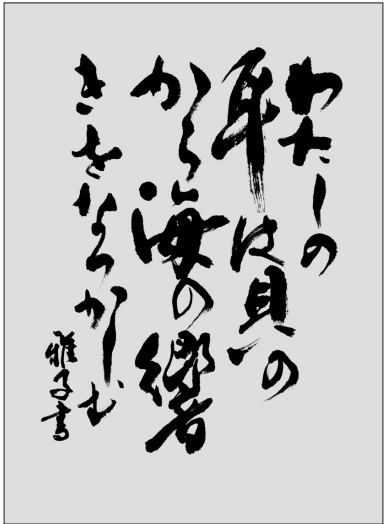 わたしの
耳は貝の
から海の響
きをなつかしむ
雅子書